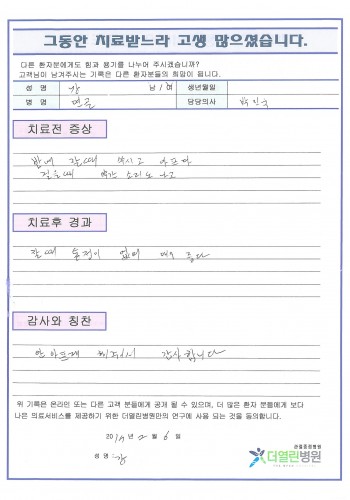 그동안 치료받느라 고생 많으셨습니다.
다른 환자분에게도 힘과 용기를 나누어 주시겠습니까?
고객님이 남겨주시는 기록은 다른 환자분들의 희망이 됩니다.
성 명 강 남 / 여 생년월일
병 명 연골 담당의사 박진국
치료전 증상
밤에 잘때 아프다
걸을때 약간 소리도 나고
치료후 경과
잘때 통증이 없어 매우 좋다
감사와 칭찬
안 아프게 해주셔서 감사합니다
위 기록은 온라인 또는 다른 고객 분들에게 공개 될 수 있으며, 더 많은 환자 분들에게 보다
나은 의료서비스를 제공하기 위한 더열린병원만의 연구에 사용 되는 것을 동의합니다.
2019 년 2 월 6 일
성 명 : 강
관절중점병원
더열린병원